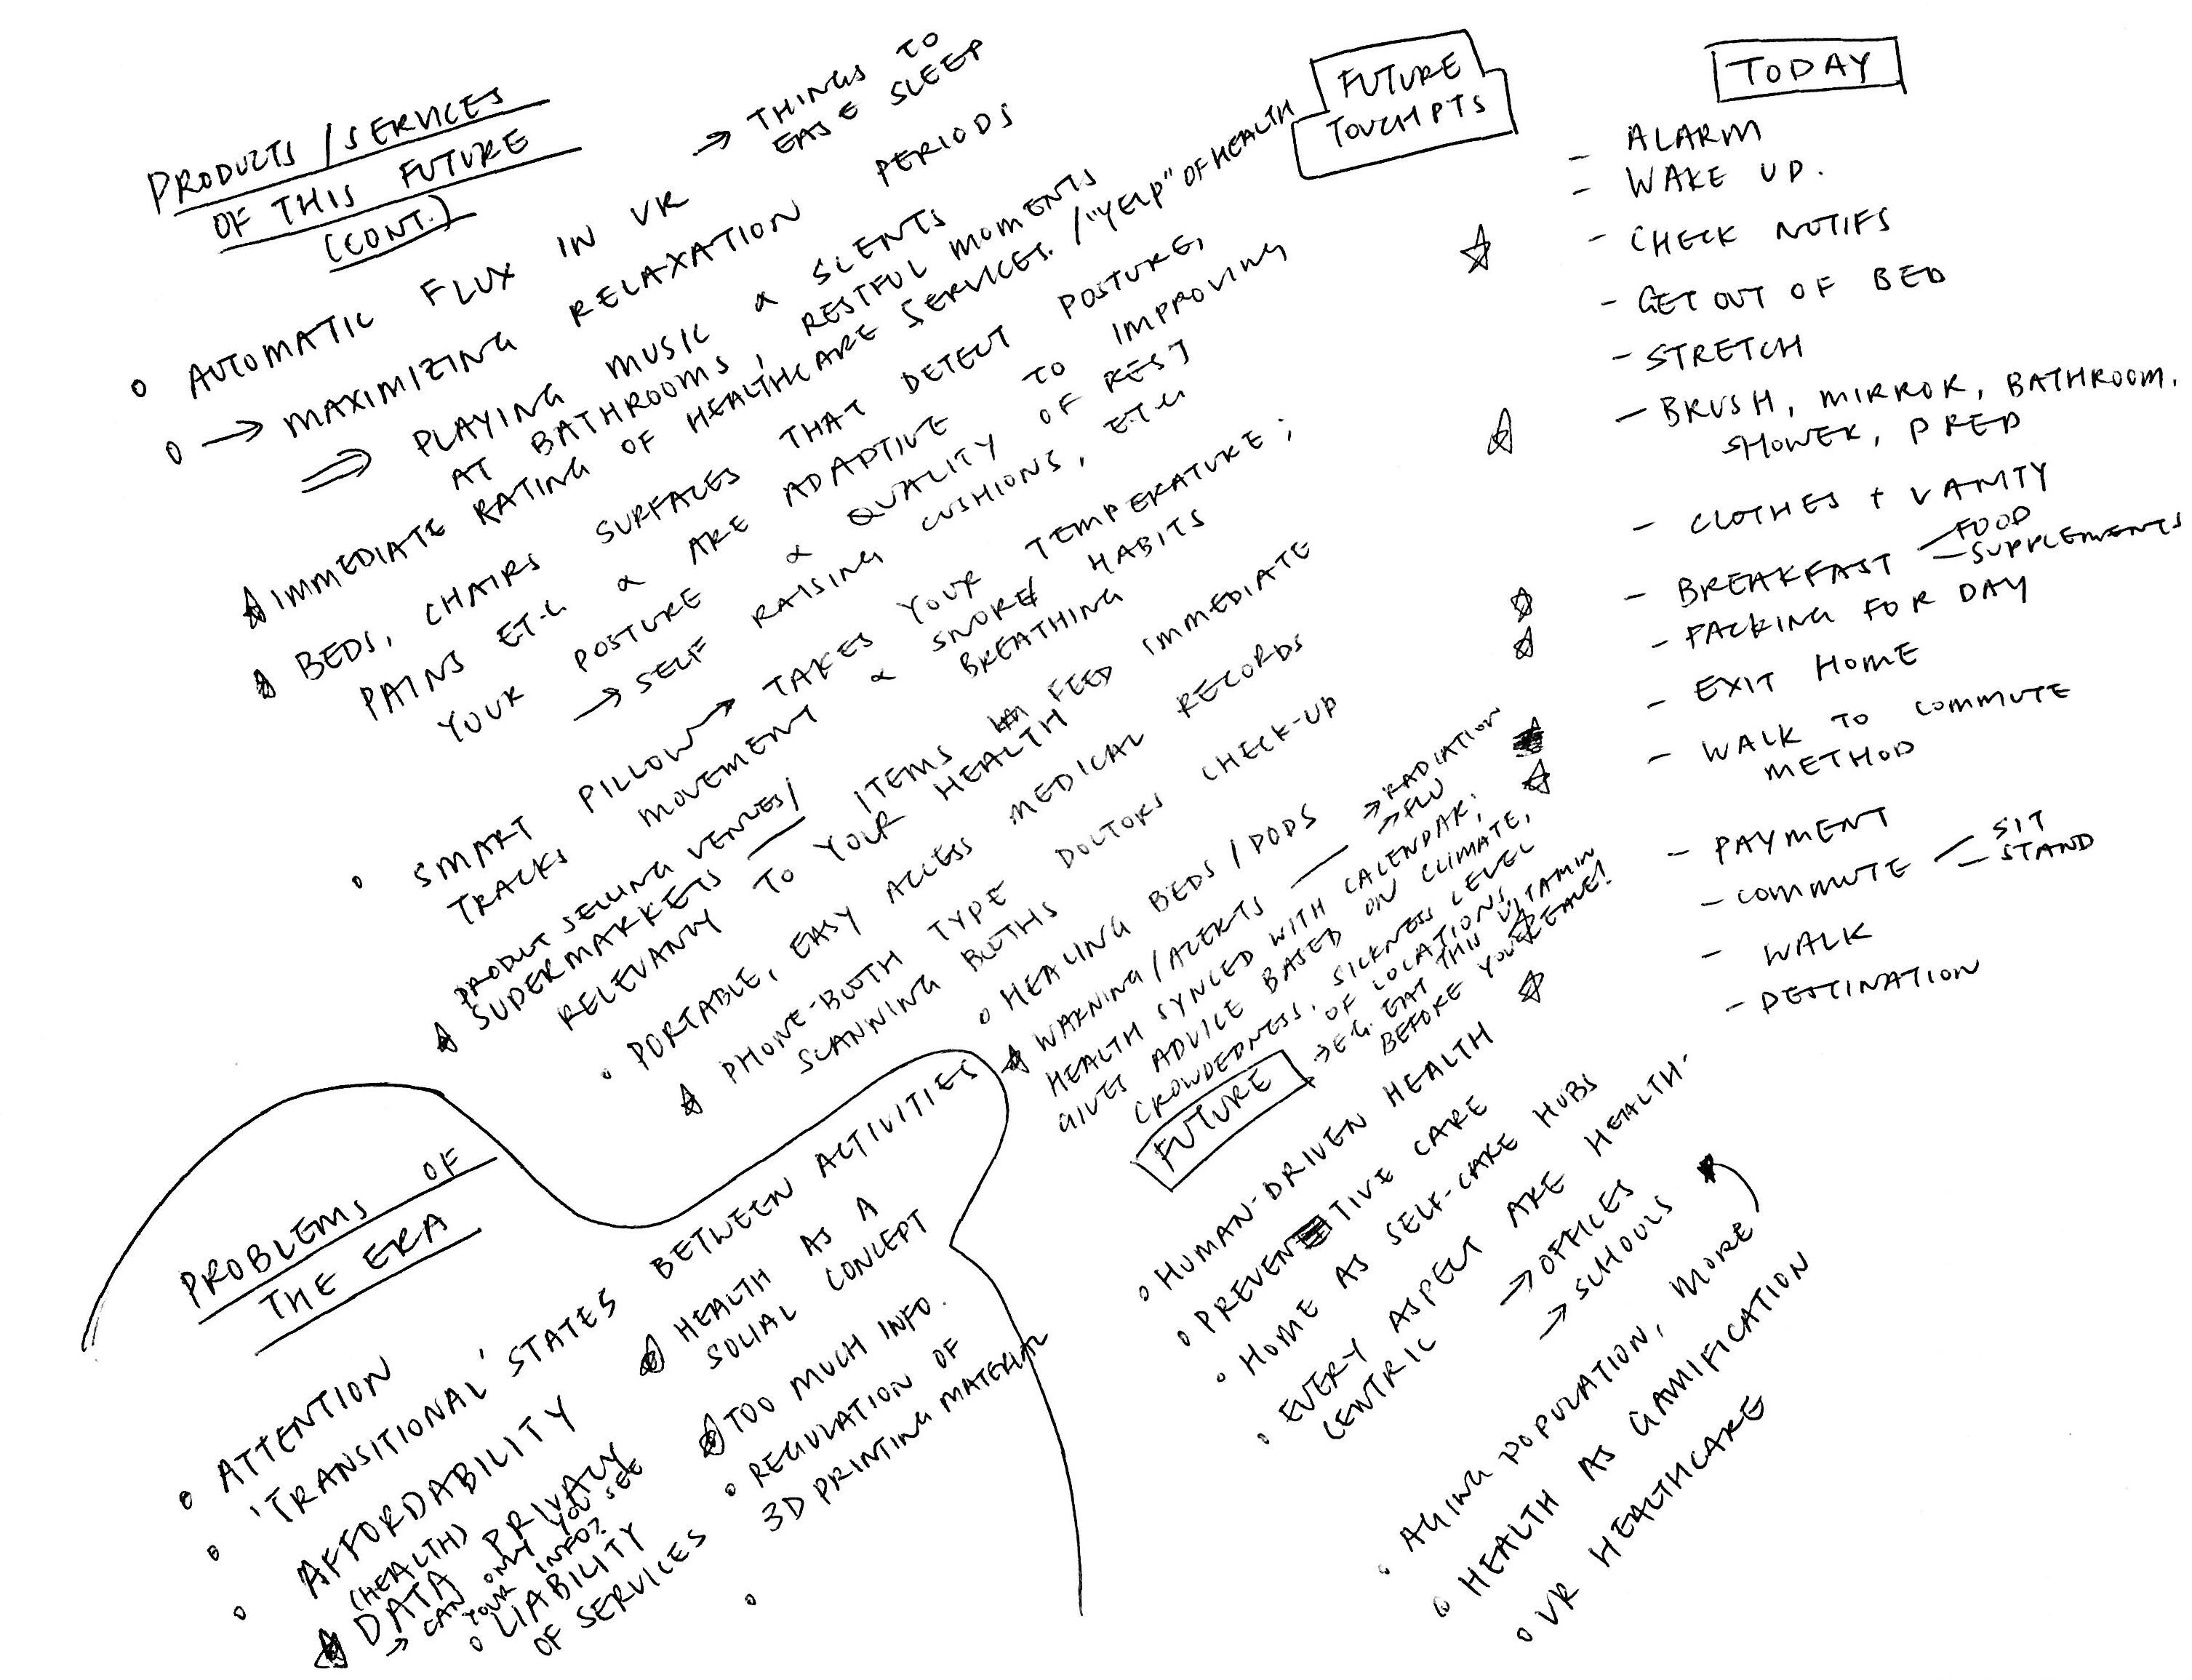 PRODUCTS / SERVICES
OF THIS FUTURE
(CONT.)
→ THINGS TO
EASE SLEEP
• AUTOMATIC FLUX IN VR
• → MAXIMIZING RELAXATION PERIODS
⇒ PLAYING MUSIC & SCENTS
AT BATHROOMS, RESTFUL MOMENTS
☆ IMMEDIATE RATING OF HEALTHCARE SERVICES. / "YELP" OF HEALTH
☆ BEDS, CHAIRS SURFACES THAT DETECT POSTURE,
PAINS ETC & ARE ADAPTIVE TO IMPROVING
YOUR POSTURE & QUALITY OF REST
→ SELF RAISING CUSHIONS, ETC
• SMART PILLOW → TAKES YOUR TEMPERATURE;
TRACKS MOVEMENT & SNORE HABITS
BREATHING
☆ PRODUCT SELLING VENUES/
SUPERMARKETS ITEMS FEED IMMEDIATE
RELEVANCY TO YOUR HEALTH
• PORTABLE, EASY ACCESS MEDICAL RECORDS
☆ PHONE-BOOTH TYPE DOCTORS CHECK-UP
SCANNING BOOTHS
• HEALING BEDS / PODS
☆ WARNING / ALERTS → RADIATION
→ FLU
HEALTH SYNCED WITH CALENDAR;
GIVES ADVICE BASED ON CLIMATE,
CROWDEDNESS, SICKNESS LEVEL
OF LOCATIONS,
→ E.G. EAT THIS VITAMIN
BEFORE YOU LEAVE!
FUTURE
TOUCH PTS
TODAY
- ALARM
- WAKE UP.
☆ - CHECK NOTIFS
- GET OUT OF BED
- STRETCH
☆ - BRUSH, MIRROR, BATHROOM,
SHOWER, PREP
- CLOTHES + VANITY
☆ - BREAKFAST - FOOD
- SUPPLEMENTS
☆ - PACKING FOR DAY
- EXIT HOME
- WALK TO COMMUTE
METHOD
- PAYMENT
- COMMUTE - SIT
- STAND
- WALK
- DESTINATION
PROBLEMS OF
THE ERA
• ATTENTION
• 'TRANSITIONAL' STATES BETWEEN ACTIVITIES
• AFFORDABILITY
(HEALTH)
☆ DATA PRIVACY
→ CAN ONLY YOU SEE
YOUR INFO?
• LIABILITY
OF SERVICES
☆ HEALTH AS A
SOCIAL CONCEPT
☆ TOO MUCH INFO.
• REGULATION OF
3D PRINTING MATERIAL
FUTURE
• HUMAN-DRIVEN HEALTH
• PREVENTIVE CARE
• HOME AS SELF-CARE HUBS
• EVERY ASPECT ARE HEALTH-
CENTRIC → OFFICES
→ SCHOOLS
• AGING POPULATION, MORE
• HEALTH AS GAMIFICATION
• VR HEALTHCARE